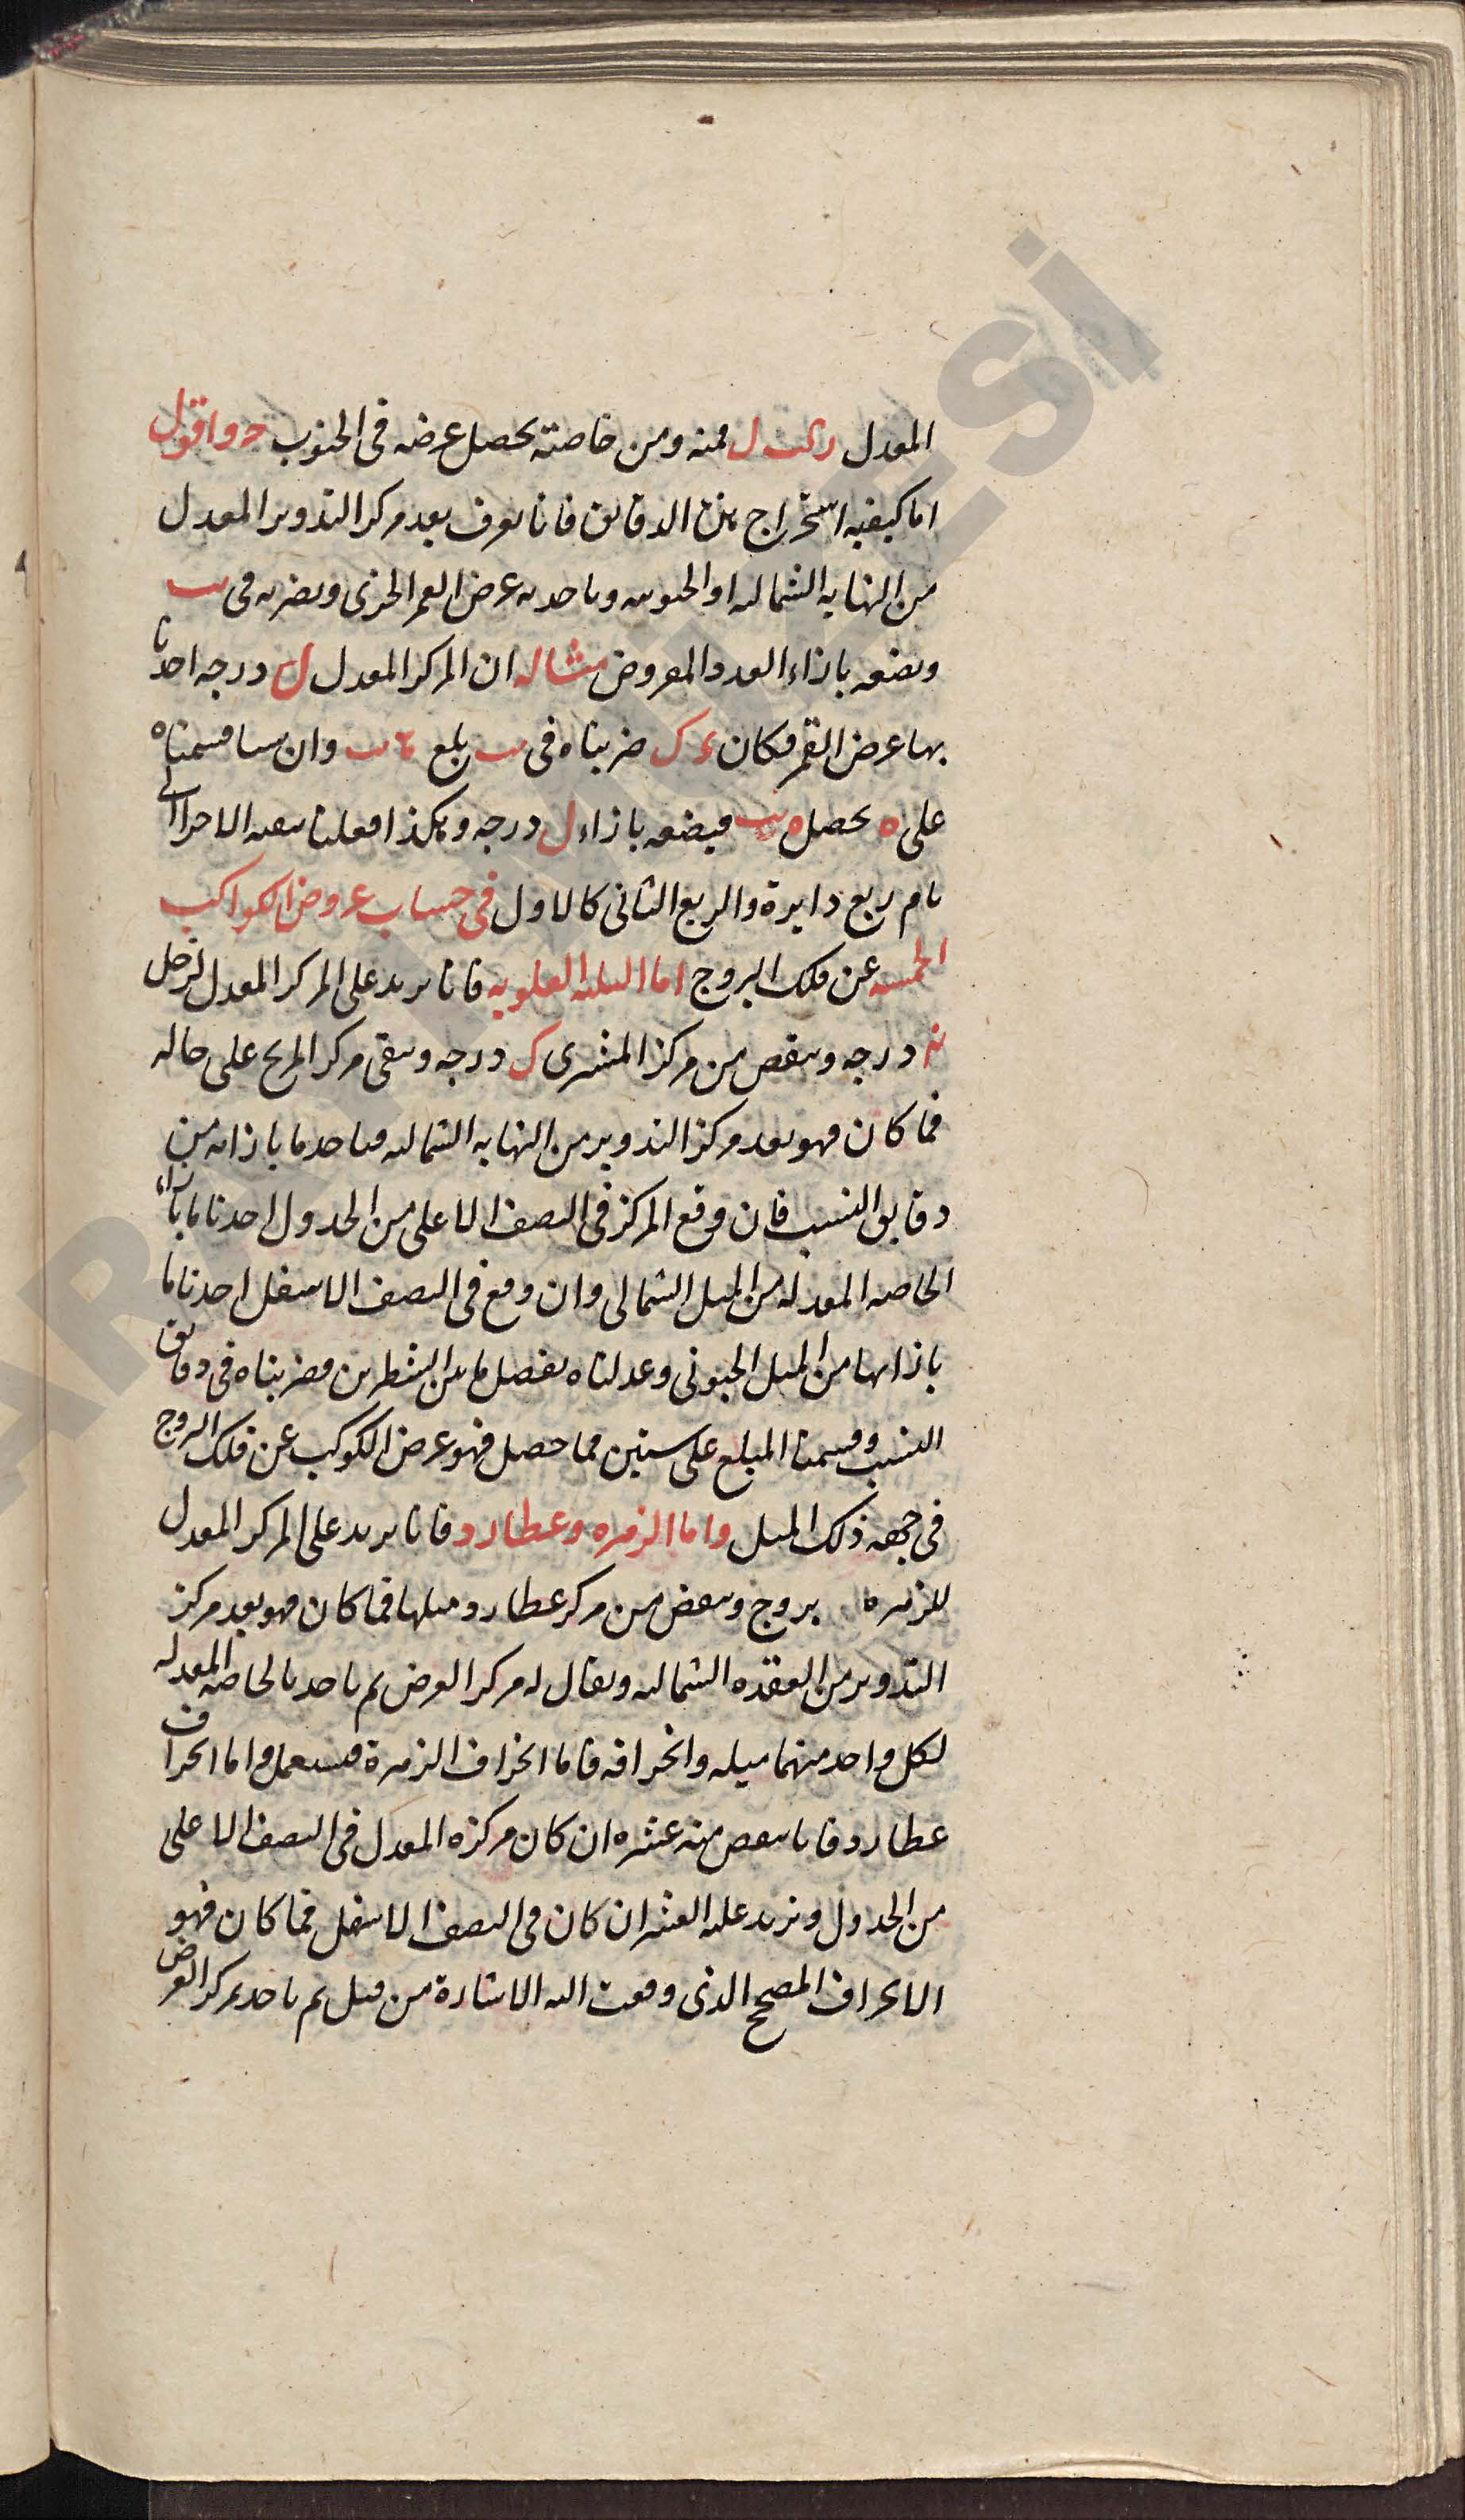 المعدل ل فمنه ومن خاصته يحصل عرضه فى الجنوب واقول
اما كيفيه استخراج هذه الدقايق فانا نعرف بعد مركز التدوير المعدل
من النهايه الشماليه او الجنوبيه وناخد به عرض القمر الجزى ونضربه فى يب
ونضعه بازاء العدد المفروض مثاله ان المركز المعدل ل درجه اخذنا
بها عرض القمر فكان د ك ضربناه فى يب بلغ نب وان شيا قسمناه
على ه يحصل نب فيضعه بازاء ل درجه وهكذا فعلنا ببقيه الاجزا الى
تمام ربع دايرة والربع الثانى كالاول فى حساب عروض الكواكب
الخمسه عن فلك البروج اما الثلثه العلويه فانا نزيد على المركز المعدل لزحل
ن درجه وننقص من مركز المشترى ك درجه ونبقى مركز المريخ على حاله
فما كان فهو بعد مركز التدوير من النهايه الشماليه فناخد ما بازائه من
دقايق النسب فان وقع المركز فى النصف الاعلى من الجدول اخدنا ما بازاء
الخاصه المعدله من الميل الشمالى وان وقع فى النصف الاسفل اخدنا ما
بازائها من الميل الجنوبى وعدلناه بفضل ما بين الشطرين وضربناه فى دقايق
النسب وقسمنا المبلغ على ستين فما حصل فهو عرض الكوكب عن فلك البروج
فى جهه ذلك الميل واما الزهره وعطارد فانا نزيد على المركز المعدل
للزهره بروج وننقص من مركز عطارد مثلها فما كان فهو بعد مركز
التدوير من العقده الشماليه ويقال له مركز العرض ثم ناخد بالخاصه المعدله
لكل واحد منهما ميله وانحرافه فاما انحراف الزهرة فيستعمل واما انحراف
عطارد فانا ننقص منه عشره ان كان مركزه المعدل فى النصف الاعلى
من الجدول ونزيد عليه العشر ان كان فى النصف الاسفل فما كان فهو
الانحراف المصحح الذى وقعت اليه الاشارة من قبل ثم ناخد بمركز العرض